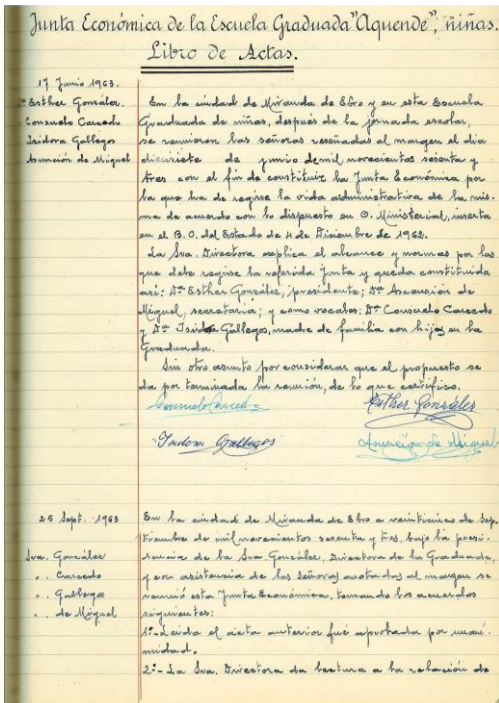 Junta Económica de la Escuela Graduada "Aquende", niñas.
Libro de Actas.
17 Junio 1963.
Dª Esther González.
Consuelo Carcedo
Isidora Gallegos
Asunción de Miguel
En la ciudad de Miranda de Ebro y en esta Escuela
Graduada de niñas, después de la jornada escolar,
se reunieron las señoras reseñadas al margen el día
diecisiete de junio de mil novecientos sesenta y
tres con el fin de constituir la Junta Económica por
la que ha de regirse la vida administrativa de la mis-
ma de acuerdo con lo dispuesto en O. Ministerial, inserta
en el B.O. del Estado de 4 de Diciembre de 1962.
La Sra. Directora explica el alcance y normas por las
que debe regirse la referida Junta y queda constituida
así: Dª Esther González, presidente; Dª Asunción de
Miguel, secretaria; y como vocales: Dª Consuelo Carcedo
y Dª Isidora Gallegos, madre de familia con hijas en la
Graduada.
Sin otro asunto por considerar que el propuesto se
da por terminada la reunión, de lo que certifico.
Consuelo Carcedo
Esther González
Isidora Gallegos
Asunción de Miguel
25 Sept. 1963
Sra. González
" . Carcedo
" . Gallegos
" . de Miguel
En la ciudad de Miranda de Ebro a veinticinco de Sep-
tiembre de mil novecientos sesenta y tres, bajo la presi-
dencia de la Sra González, Directora de la Graduada,
y con asistencia de las Señoras anotadas al margen se
reunió esta Junta Económica, tomando los acuerdos
siguientes:
1º.- Leída el acta anterior fué aprobada por unani-
midad.
2º.- La Sra. Directora da lectura a la relación de